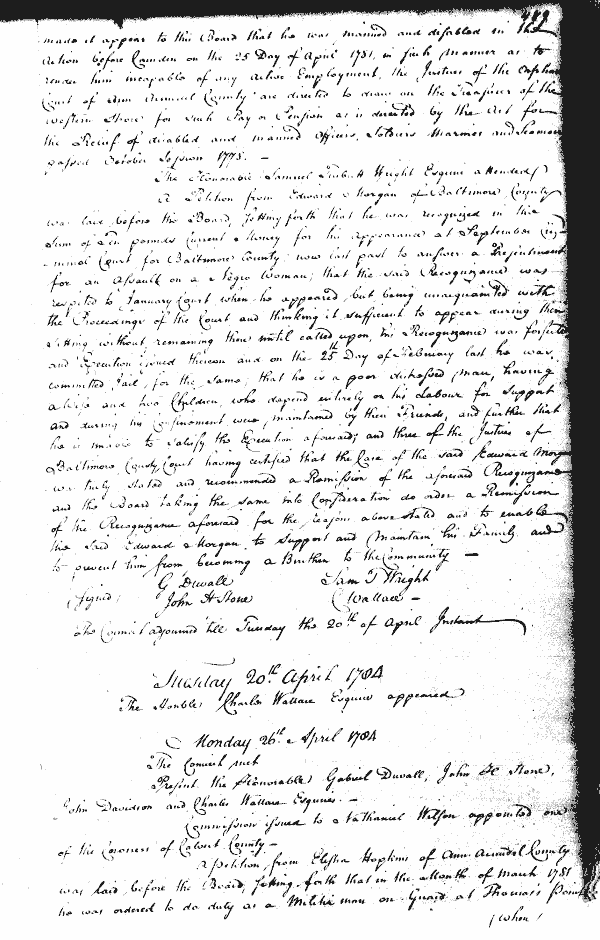 made it appear to this Board that he was maimed and disabled in the
Action before Camden on the 25 Day of April 1781, in such Manner as to
render him incapable of any Active Employment, the Justices of the Orphans
Court of Ann Arundel County are directed to draw on the Treasurer of the
western Shore for such Pay or Pension as is directed by the Act for
the Relief of disabled and maimed Officers, Soldiers Marines and Seamen
passed October Session 1778. —
The Honorable Samuel Turbutt Wright Esquire attended
A Petition from Edward Morgan of Baltimore County
was laid before the Board, setting forth that he was recognized in the
Sum of Ten pounds Current Money for his appearance at September Cri-
minal Court for Baltimore County now last past to answer a Presentment
for an Assault on a Negro Woman; that the said Recognizance was
respited to January Court when he appeared, but being unacquainted with
the Proceedings of the Court and thinking it sufficient to appear during their
Sitting without remaining there until called upon, his Recognizance was forfeited
and Execution issued thereon and on the 25th Day of February last he was
committed Jail, for the same; that he is a poor distressed Man, having
a Wife and two Children, who depend entirely on his Labour for Support
and during his Confinement were maintained by their Friends, and further that
he is unable to satisfy the Execution aforesaid; and three of the Justices of
Baltimore County Court having certified that the Case of the said Edward Morgan
was truly stated and recommended a Remission of the aforesaid Recognizance
and the Board taking the same into Consideration do order a Remission
of the Recognizance aforesaid for the reasons above stated and to enable
the said Edward Morgan to Support and Maintain his Family and
to prevent him from becoming a Burthen to the Community —
G Duvall Sam T Wright
(Signed) John H Stone C Wallace —
The Council adjourned till Tuesday the 20th of April Instant
Tuesday 20th April 1784
The Honble Charles Wallace Esquire appeared
Monday 26th April 1784
The Council met
Present the Honorable Gabriel Duvall, John H Stone,
John Davidson and Charles Wallace Esquires. —
Commission issued to Nathaniel Wilson appointed one
of the Coroners of Calvert County —
A Petition from Elisha Hopkins of Ann Arundel County
was laid before the Board, setting forth that in the Month of March 1781
he was ordered to do duty as a Militia man on Guard at Thomas's Point
(when)